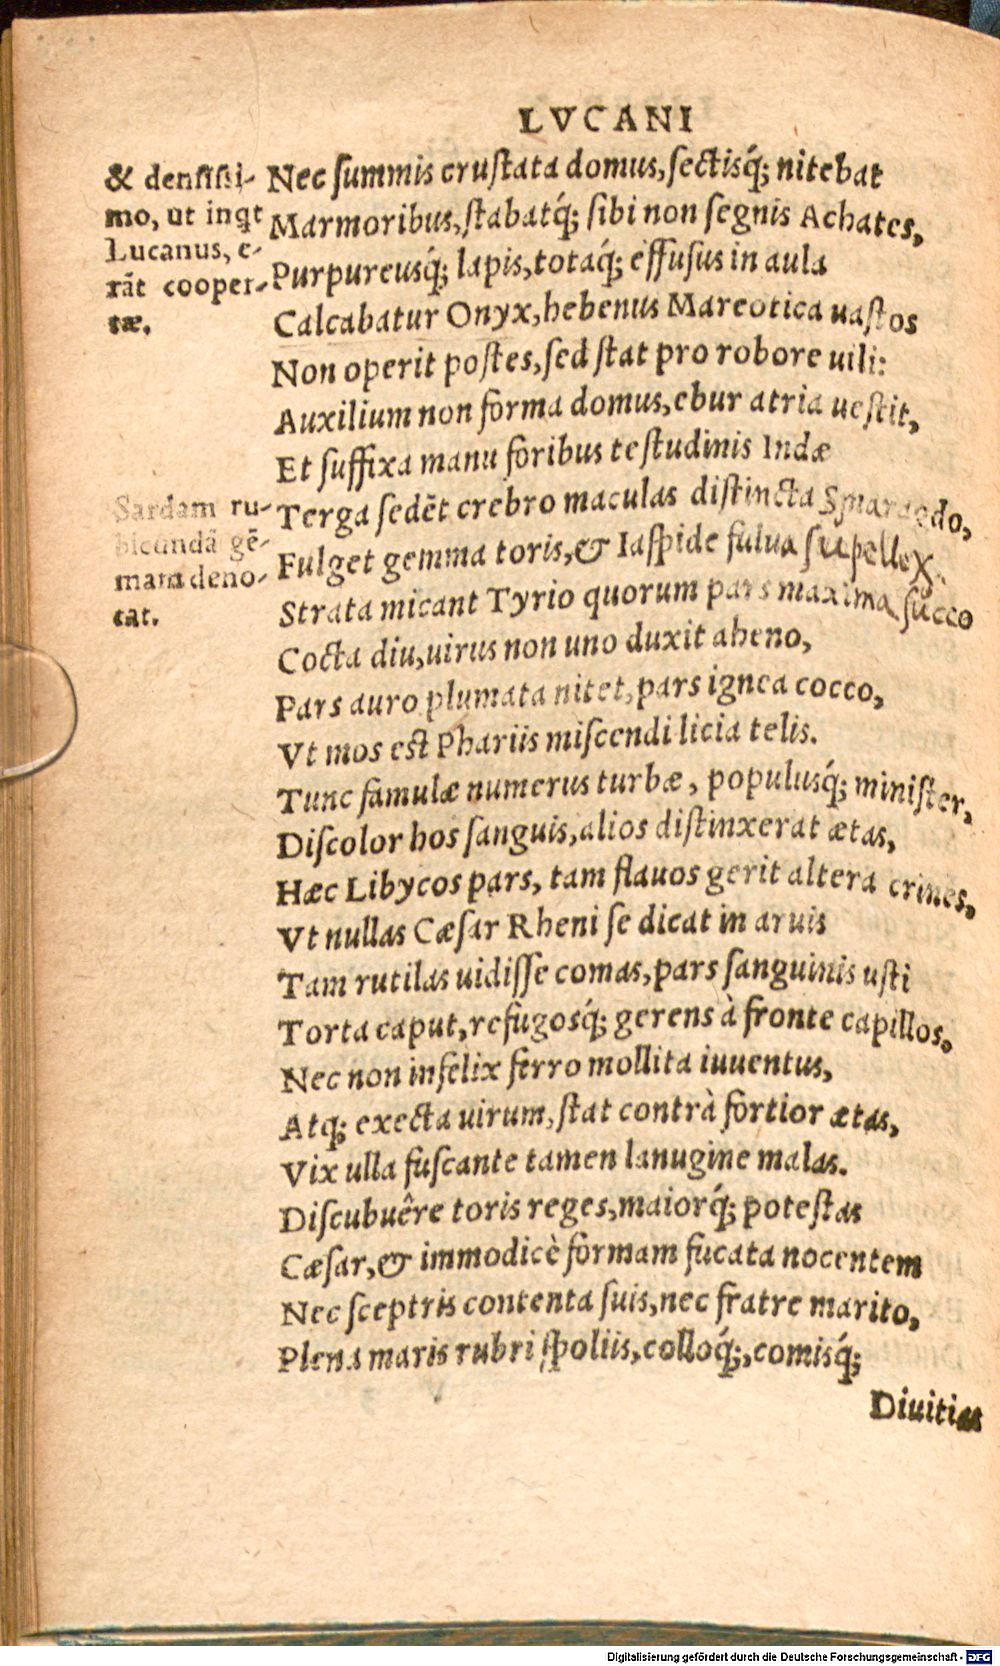 LVCANI
& densissi-
mo, ut inqt
Lucanus, e-
rãt cooper-
tæ.
Sardam ru-
bicundã gẽ-
mam deno-
tat.
Nec summis crustata domus, sectisq́; nitebat
Marmoribus, stabatq́; sibi non segnis Achates,
Purpureusq́; lapis, totaq́; effusus in aula
Calcabatur Onyx, hebenus Mareotica uastos
Non operit postes, sed stat pro robore uili:
Auxilium non forma domus, ebur atria uestit,
Et suffixa manu foribus testudinis Indæ
Terga sedẽt crebro maculas distincta Smaragdo,
Fulget gemma toris, & Iaspide fulua supellex.
Strata micant Tyrio quorum pars maxima succo
Cocta diu, uirus non uno duxit aheno,
Pars auro plumata nitet, pars ignea cocco,
Vt mos est Phariis miscendi licia telis.
Tunc famulæ numerus turbæ, populusq́; minister,
Discolor hos sanguis, alios distinxerat ætas,
Hæc Libycos pars, tam flauos gerit altera crines,
Vt nullas Cæsar Rheni se dicat in aruis
Tam rutilas uidisse comas, pars sanguinis usti
Torta caput, refugosq́; gerens à fronte capillos.
Nec non infelix ferro mollita iuuentus,
Atq; execta uirum, stat contrà fortior ætas,
Vix ulla fuscante tamen lanugine malas.
Discubuêre toris reges, maiorq́; potestas
Cæsar, & immodicè formam fucata nocentem
Nec sceptris contenta suis, nec fratre marito,
Plena maris rubri spoliis, colloq́;, comisq́;
Diuitias
Digitalisierung gefördert durch die Deutsche Forschungsgemeinschaft - DFG